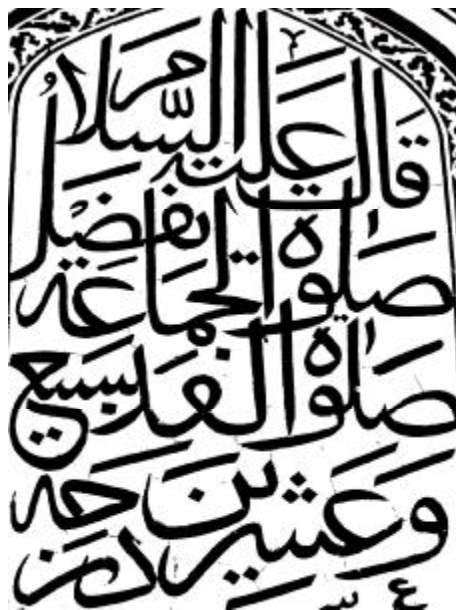 قال عليه السلام
صلوة الجماعه تفضل
صلوة الفد بسبع
وعشرين درجه